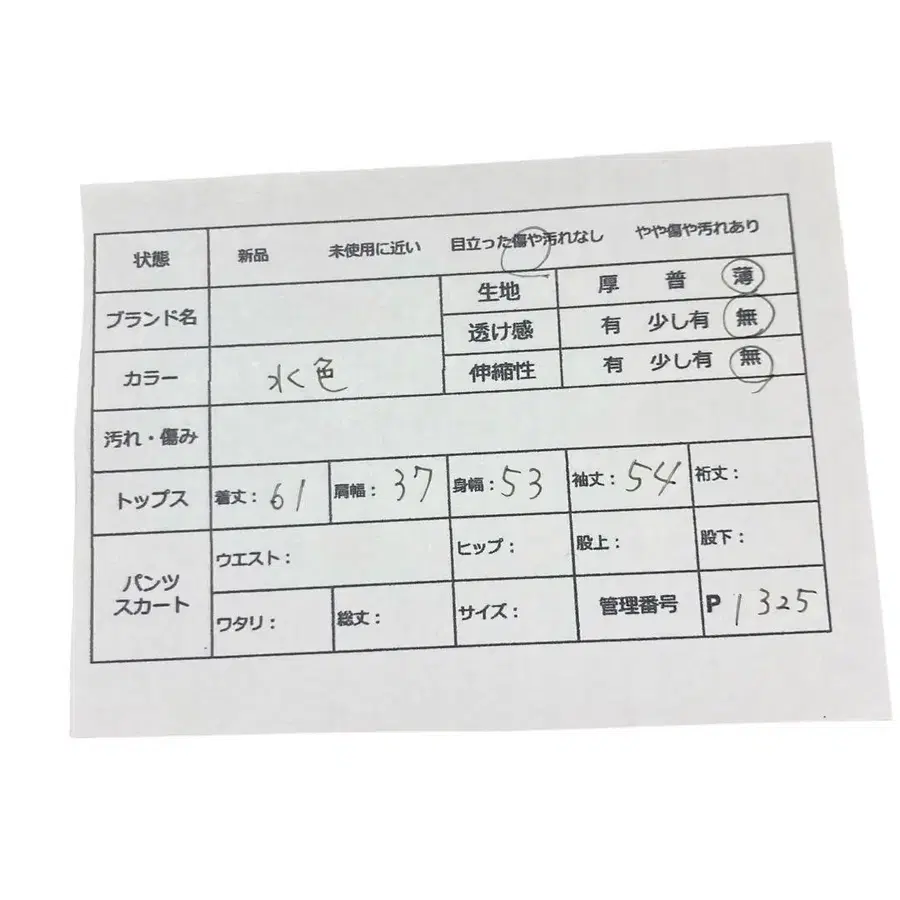 状態 新品 未使用に近い 目立った傷や汚れなし やや傷や汚れあり
ブランド名 生地 厚 普 薄
透け感 有 少し有 無
カラー 水色 伸縮性 有 少し有 無
汚れ・傷み
トップス 着丈：61 肩幅：37 身幅：53 袖丈：54 裄丈：
パンツ
スカート
ウエスト： ヒップ： 股上： 股下：
ワタリ： 総丈： サイズ： 管理番号 P 1325